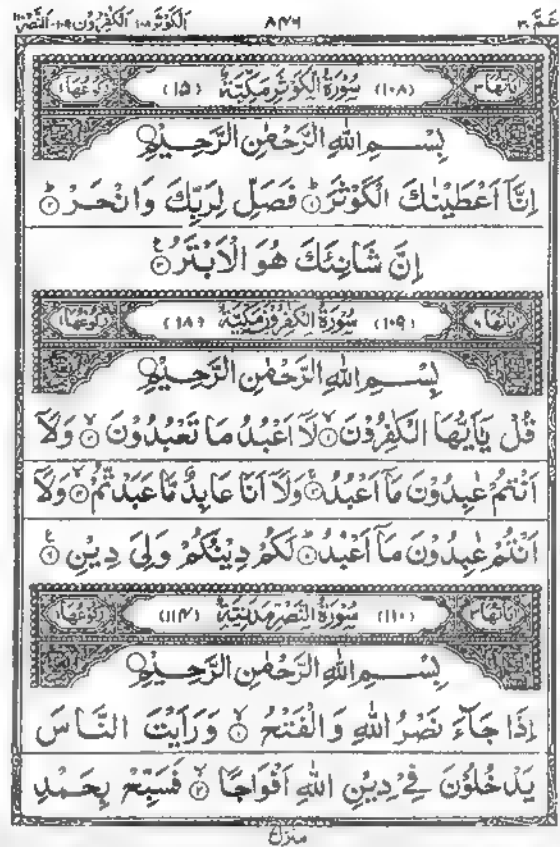 عَمَّ ٣٠ ٨٤٦ الْكَوْثَر ١٠٨ الْكٰفِرُوْن ١٠٩ النَّصْر ١١٠
اٰيَاتُهَا ٣ (١٠٨) سُوْرَةُ الْكَوْثَرِ مَكِّيَّةٌ (١٥) رُكُوْعُهَا ١
بِسْمِ اللّٰهِ الرَّحْمٰنِ الرَّحِيْمِ
اِنَّاۤ اَعْطَيْنٰكَ الْكَوْثَرَ ؕ﴿١﴾ فَصَلِّ لِرَبِّكَ وَانْحَرْ ؕ﴿٢﴾
اِنَّ شَانِئَكَ هُوَ الْاَبْتَرُ ﴿٣﴾
اٰيَاتُهَا ٦ (١٠٩) سُوْرَةُ الْكٰفِرُوْنَ مَكِّيَّةٌ (١٨) رُكُوْعُهَا ١
بِسْمِ اللّٰهِ الرَّحْمٰنِ الرَّحِيْمِ
قُلْ يٰۤاَيُّهَا الْكٰفِرُوْنَ ۙ﴿١﴾ لَاۤ اَعْبُدُ مَا تَعْبُدُوْنَ ۙ﴿٢﴾ وَلَاۤ
اَنْتُمْ عٰبِدُوْنَ مَاۤ اَعْبُدُ ۚ﴿٣﴾ وَلَاۤ اَنَا عَابِدٌ مَّا عَبَدْتُّمْ ۙ﴿٤﴾ وَلَاۤ
اَنْتُمْ عٰبِدُوْنَ مَاۤ اَعْبُدُ ؕ﴿٥﴾ لَكُمْ دِيْنُكُمْ وَلِيَ دِيْنِ ﴿٦﴾
اٰيَاتُهَا ٣ (١١٠) سُوْرَةُ النَّصْرِ مَدَنِيَّةٌ (١١٤) رُكُوْعُهَا ١
بِسْمِ اللّٰهِ الرَّحْمٰنِ الرَّحِيْمِ
اِذَا جَآءَ نَصْرُ اللّٰهِ وَالْفَتْحُ ۙ﴿١﴾ وَرَاَيْتَ النَّاسَ
يَدْخُلُوْنَ فِيْ دِيْنِ اللّٰهِ اَفْوَاجًا ۙ﴿٢﴾ فَسَبِّحْ بِحَمْدِ